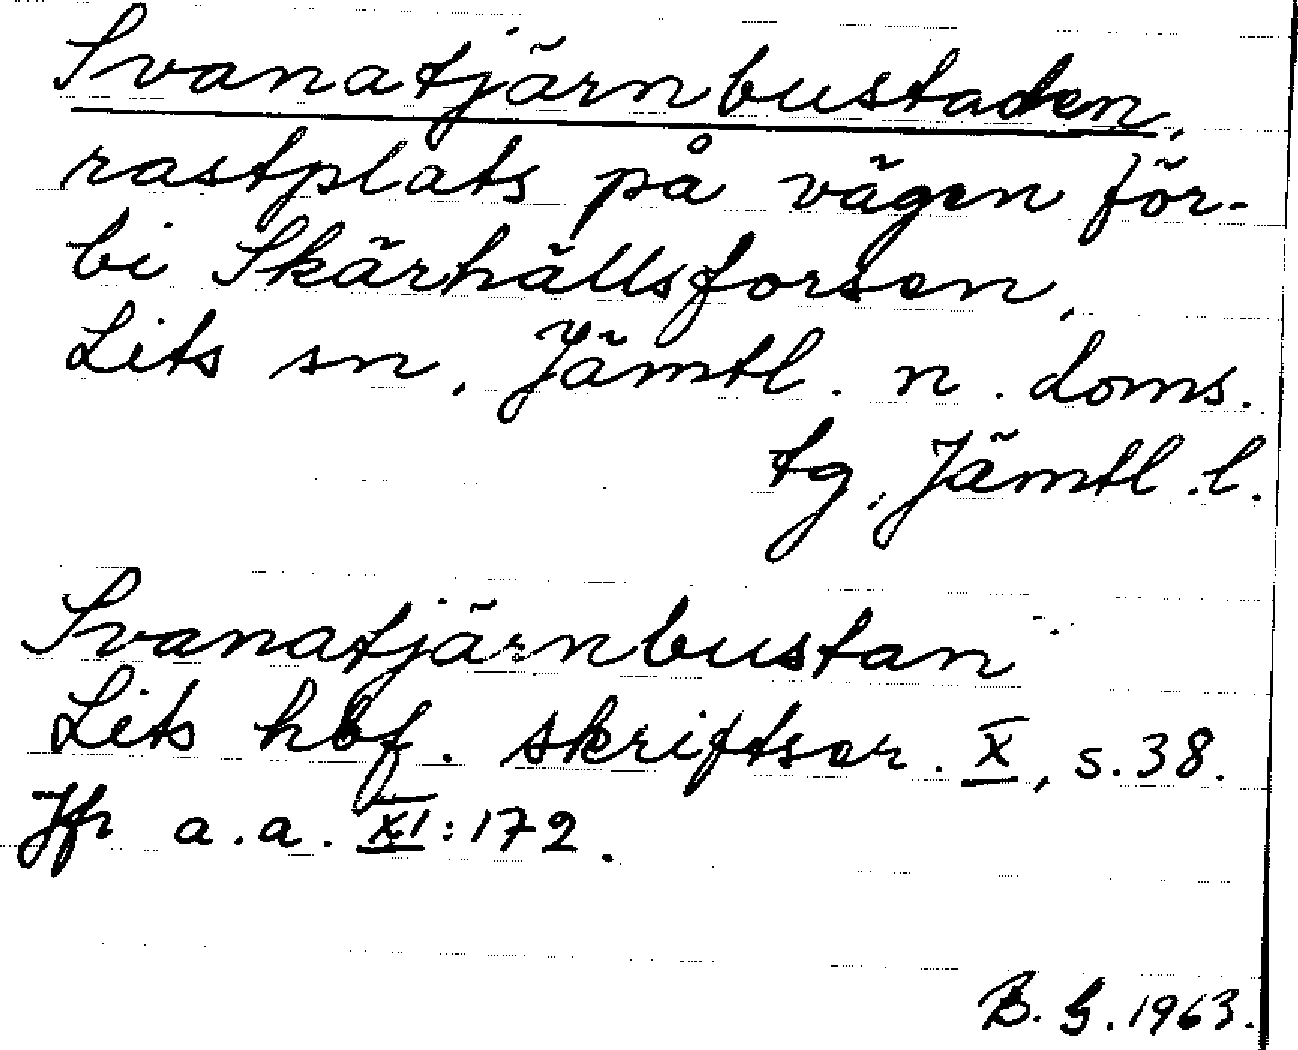 Svanatjärnbustaden,
rastplats på vägen för-
bi Skärhällsforsen,
Lits sn, Jämtl. n. doms.
tg, Jämtl. l.
Svanatjärnbustan
Lits hbf. skriftser. X, s. 38.
Jfr a.a. XI: 172.
B. G. 1963.